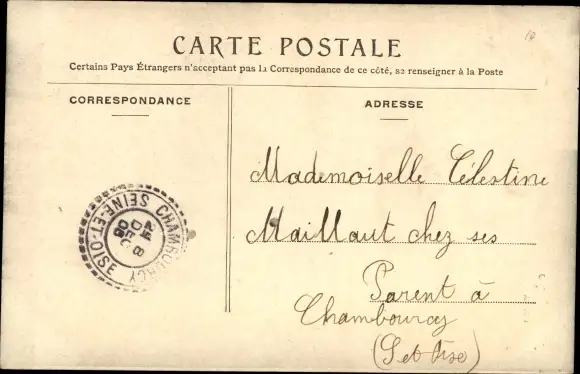 CARTE POSTALE
Certains Pays Étrangers n'acceptent pas la Correspondance de ce côté, se renseigner à la Poste
CORRESPONDANCE
ADRESSE
Mademoiselle Célestine
Maillaut chez ses
Parent à
Chambourcy
(S et Oise)
CHAMBOURCY
SEINE-ET-OISE